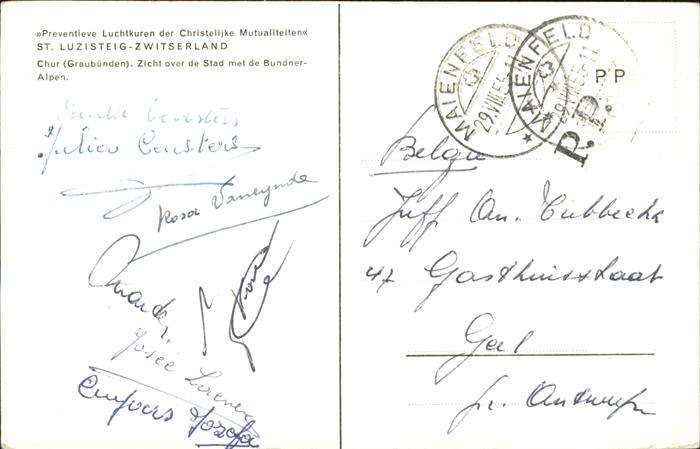 »Preventieve Luchtkuren der Christelijke Mutualiteiten«
ST. LUZISTEIG-ZWITSERLAND
Chur (Graubünden). Zicht over de Stad met de Bundner-
Alpen.
Julien Censters
Rosa Vaneynde
Josée
Cuypers Jozefa
MAIENFELD
29.VIII.55-11
MAIENFELD
PP
P.P.
Belgie
Juff An. Cubbeeck
47 Gasthuisstraat
Geel
pr. Antwerpen